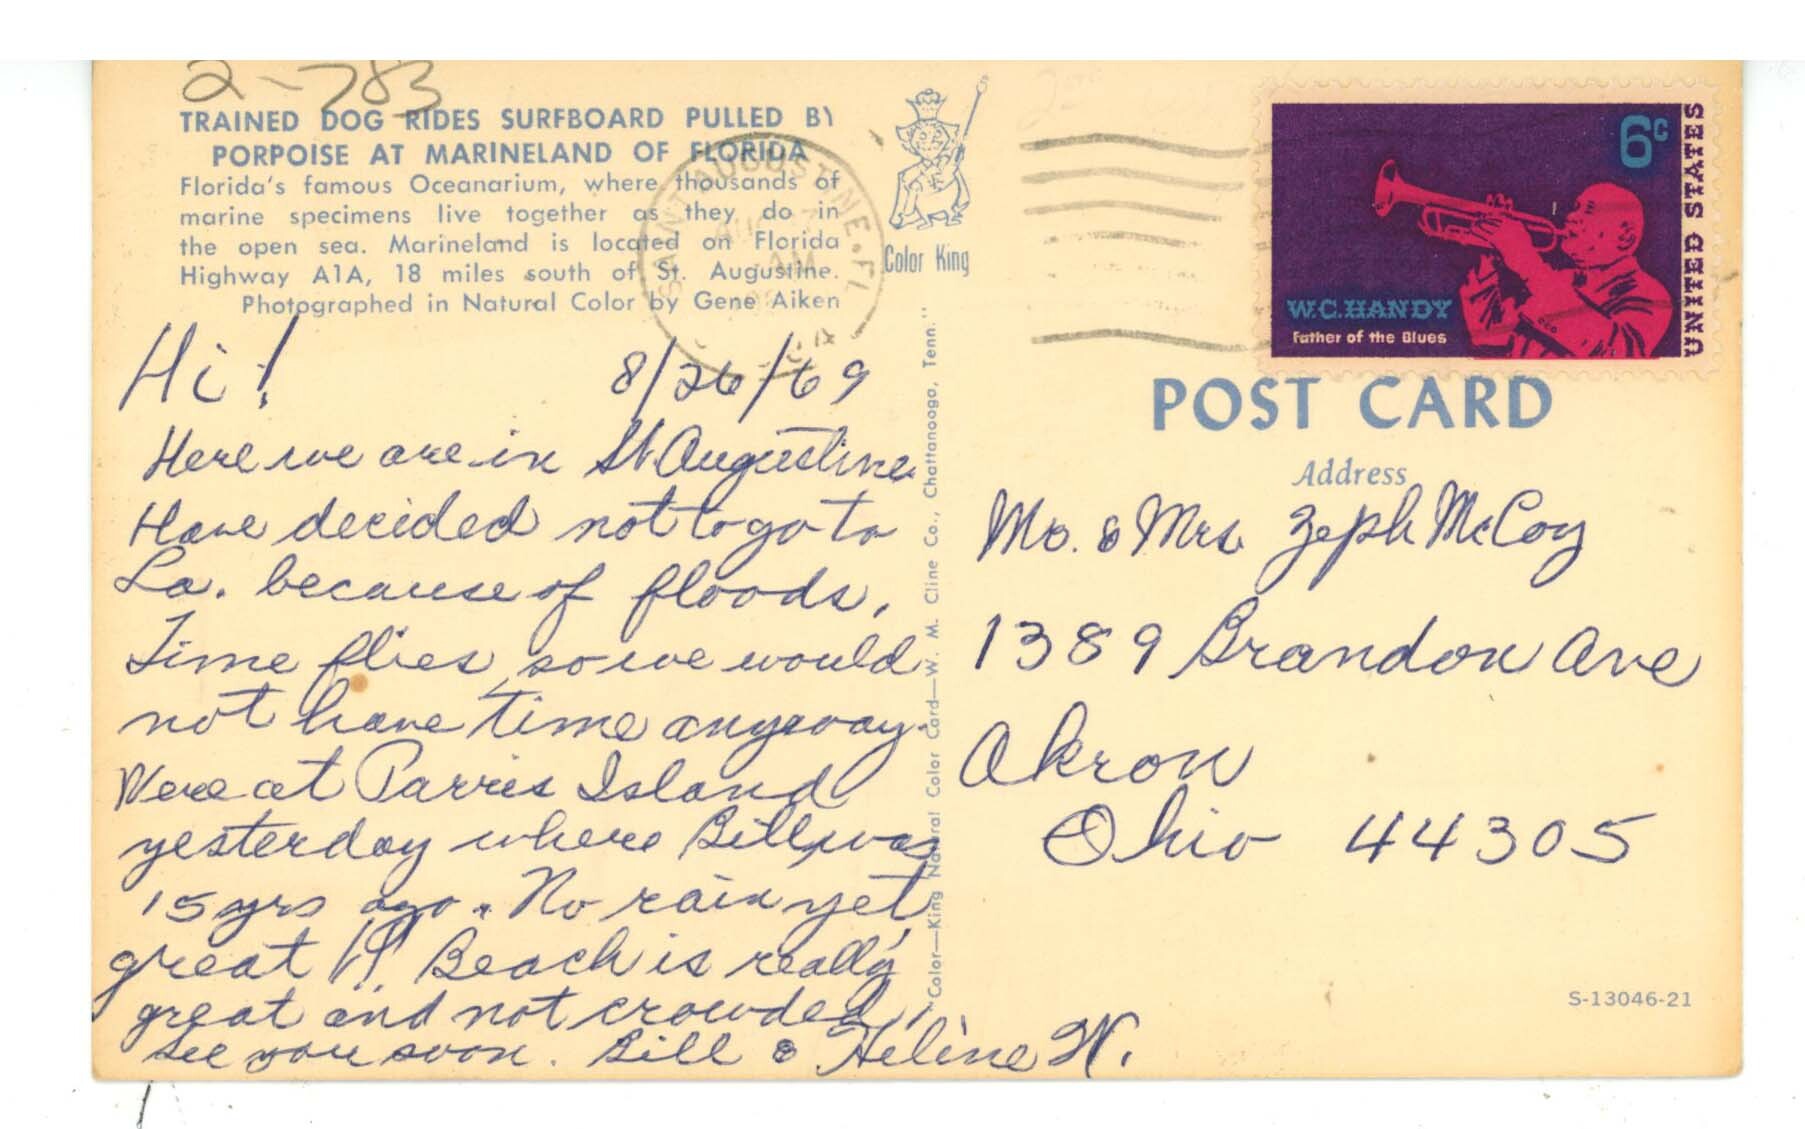 2-783
TRAINED DOG RIDES SURFBOARD PULLED BY
PORPOISE AT MARINELAND OF FLORIDA
Florida's famous Oceanarium, where thousands of
marine specimens live together as they do in
the open sea. Marineland is located on Florida
Highway A1A, 18 miles south of St. Augustine.
Photographed in Natural Color by Gene Aiken
Color King
SAINT AUGUSTINE, FL
AUG
AM
6c
UNITED STATES
W.C.HANDY
Father of the Blues
POST CARD
Address
Hi! 8/26/69
Here we are in St Augustine.
Have decided not to go to
La. because of floods,
Time flies, so we would
not have time anyway.
Were at Parris Island
yesterday where Bill was
15 yrs ago. No rain yet,
great !! Beach is really
great and not crowded,
See you soon. Bill & Heline W.
"Color—King Natural Color Card—W. M. Cline Co., Chattanooga, Tenn."
Mr. & Mrs. Zeph McCoy
1389 Brandon Ave
Akron
Ohio 44305
S-13046-21